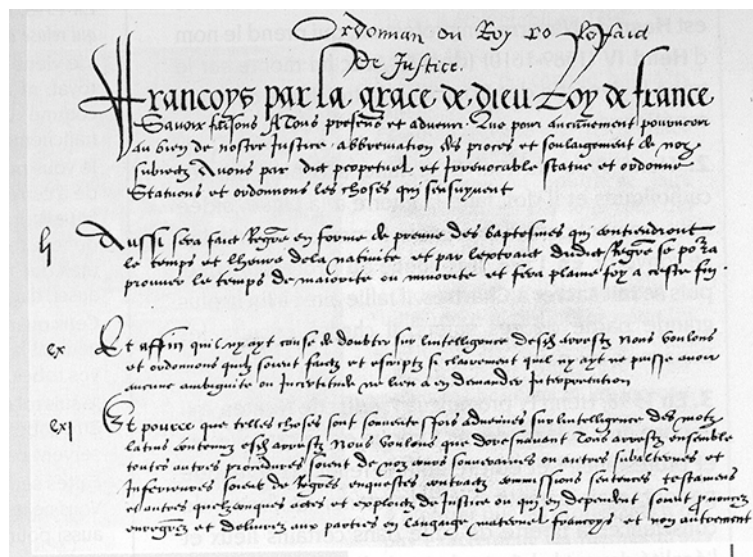 Ordonnan du Roy
De Justice.
Francoys par la grace de dieu Roy de france
Savoir faisons A Tous presens et advenir. Que pour aucunement pourveoir
au bien de nostre Justice, abbreviation des proces et soulagement de noz
subiectz Avons par edict perpetuel et Irrevocable statue et ordonne
Statuons et ordonnons les choses qui sensuyvent
Aussi sera faict Regre en forme de preuve des baptesmes qui contiendront
le temps et lheure de la nativite et par lextraict dudict Regre se porra
prouver le temps de maiorite ou minorite et fera plaine foy a ceste fin.
cx Et affin quil ny ayt cause de doubter sur lintelligence desdz arrestz Nous voulons
et ordonnons quilz soient faictz et escriptz si clairement quil ny ayt ne puisse avoir
aucune ambiguite ou Incertitude ne lieu a en demander Interpretation
cxi Et pource que telles choses sont souventeffois advenues sur lintelligence des motz
latins contenuz esdz arrestz Nous voulons que doresnavant Tous arrestz ensemble
toutes autres procedures soient de noz cours souveraines ou autres subalternes et
Inferieures soient de Regres enquestes contractz commissions sentences testamens
et autres quelzconques actes et exploictz de Justice ou qui en dependent soient prononcez
enregrez et delivrez aux parties en langage maternel francoys et non autrement